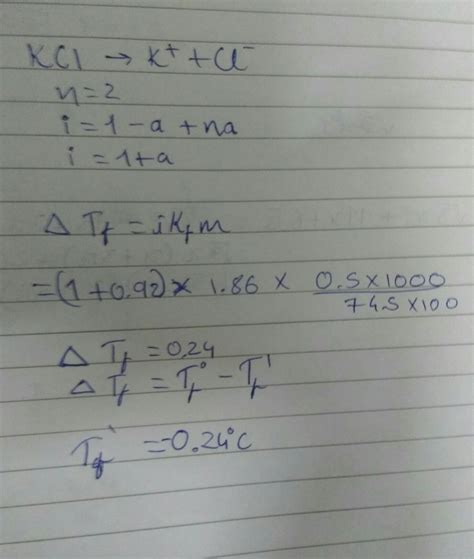 KCl → K⁺ + Cl⁻
n = 2
i = 1 - a + na
i = 1 + a
Δ Tf = i Kf m
= (1 + 0.92) × 1.86 × 0.5 × 1000 / 74.5 × 100
Δ Tf = 0.24
Δ Tf = Tf° - Tf'
Tf' = -0.24°C